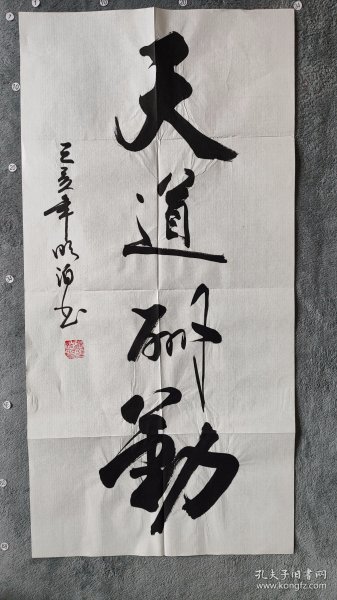 天道酬勤
己亥年明泊书
孔夫子旧书网
www.kongfz.com